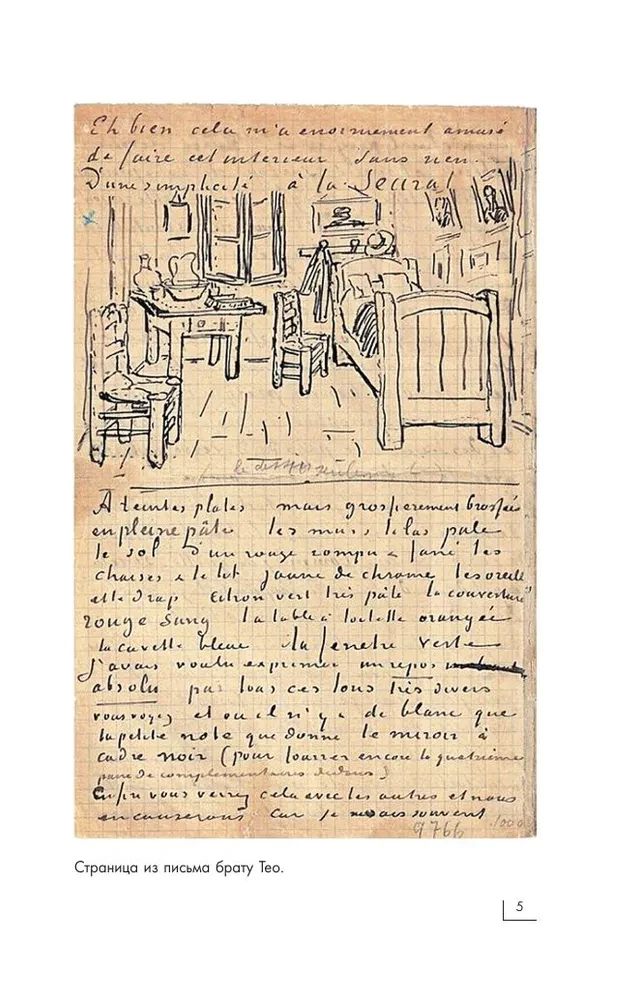 Eh bien cela m'a enormement amusé
de faire cet interieur sans rien.
D'une simplicité à la Seurat
A teintes plates mais grossierement brossées
en pleine pâte les murs lilas pale
le sol d'un rouge rompu & fané les
chaises & le lit jaune de chrome les oreillers
et le drap citron vert très pâle la couverture
rouge sang la table à toilette orangée
la cuvette bleue la fenetre verte
J'avais voulu exprimer un repos
absolu par tous ces tons très divers
vous voyez et ou il n'y a de blanc que
la petite note que donne le miroir à
cadre noir (pour fourrer encore la quatrième
paire de complementaires dedans)
Enfin vous verrez cela avec les autres et nous
en causerons car je ne sais souvent
9766
Страница из письма брату Тео.
5